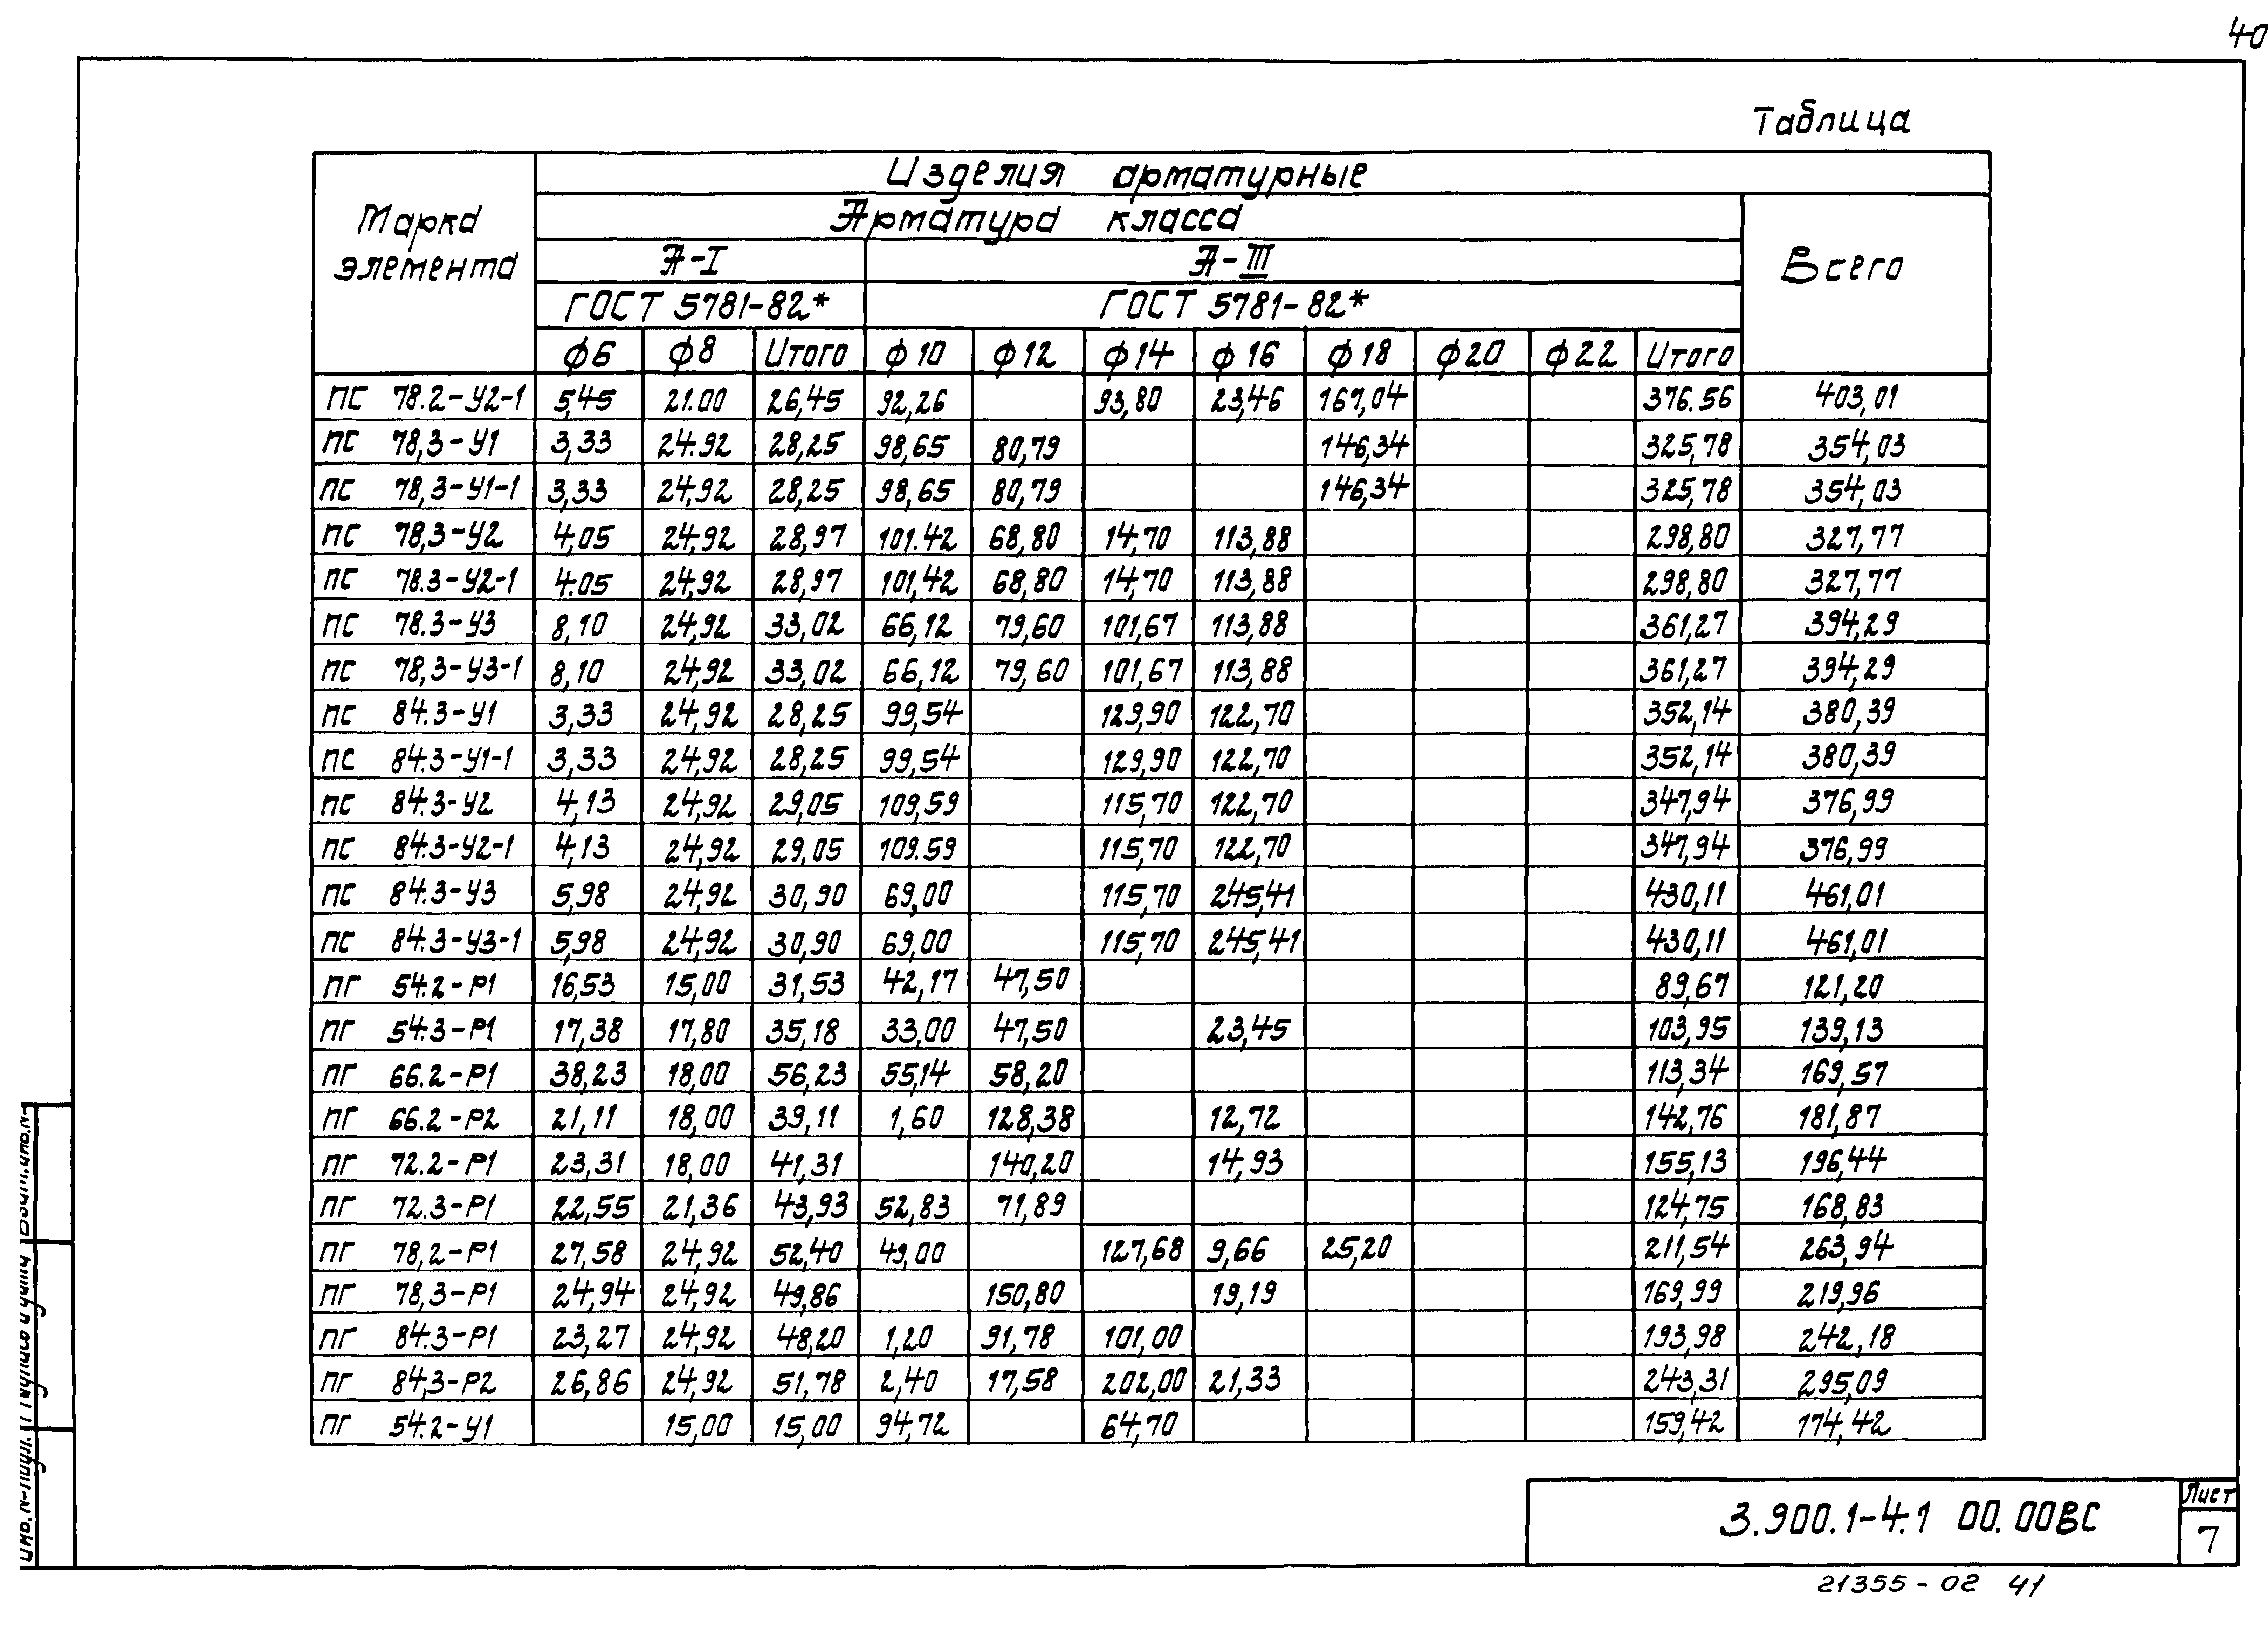 40
Таблица
Марка элемента
Изделия арматурные
Арматура класса
Всего
А-I
А-III
ГОСТ 5781-82*
ГОСТ 5781-82*
ф6 ф8 Итого ф10 ф12 ф14 ф16 ф18 ф20 ф22 Итого
ПС 78.2-У2-1 5,45 21.00 26,45 92,26 93,80 23,46 167,04 376.56 403,01
ПС 78,3-У1 3,33 24.92 28,25 98,65 80,79 146,34 325,78 354,03
ПС 78,3-У1-1 3,33 24,92 28,25 98,65 80,79 146,34 325,78 354,03
ПС 78,3-У2 4,05 24,92 28,97 101.42 68,80 14,70 113,88 298,80 327,77
ПС 78.3-У2-1 4.05 24,92 28,97 101,42 68,80 14,70 113,88 298,80 327,77
ПС 78.3-У3 8,10 24,92 33,02 66,12 79,60 101,67 113,88 361,27 394,29
ПС 78,3-У3-1 8,10 24,92 33,02 66,12 79,60 101,67 113,88 361,27 394,29
ПС 84.3-У1 3,33 24,92 28,25 99,54 129,90 122,70 352,14 380,39
ПС 84.3-У1-1 3,33 24,92 28,25 99,54 129,90 122,70 352,14 380,39
ПС 84.3-У2 4,13 24,92 29,05 109,59 115,70 122,70 347,94 376,99
ПС 84.3-У2-1 4,13 24,92 29,05 109.59 115,70 122,70 347,94 376,99
ПС 84.3-У3 5,98 24,92 30,90 69,00 115,70 245,41 430,11 461,01
ПС 84.3-У3-1 5,98 24,92 30,90 69,00 115,70 245,41 430,11 461,01
ПГ 54.2-Р1 16,53 15,00 31,53 42,17 47,50 89,67 121,20
ПГ 54.3-Р1 17,38 17,80 35,18 33,00 47,50 23,45 103,95 139,13
ПГ 66.2-Р1 38,23 18,00 56,23 55,14 58,20 113,34 169,57
ПГ 66.2-Р2 21,11 18,00 39,11 1,60 128,38 12,72 142,76 181,87
ПГ 72.2-Р1 23,31 18,00 41,31 140,20 14,93 155,13 196,44
ПГ 72.3-Р1 22,55 21,36 43,93 52,83 71,89 124,75 168,83
ПГ 78,2-Р1 27,58 24,92 52,40 49,00 127,68 9,66 25,20 211,54 263,94
ПГ 78,3-Р1 24,94 24,92 49,86 150,80 19,19 169,99 219,96
ПГ 84.3-Р1 23,27 24,92 48,20 1,20 91,78 101,00 193,98 242,18
ПГ 84,3-Р2 26,86 24,92 51,78 2,40 17,58 202,00 21,33 243,31 295,09
ПГ 54.2-У1 15,00 15,00 94,72 64,70 159,42 174,42
3.900.1-4.1 00.00ВС
Лист
7
21355-02 41